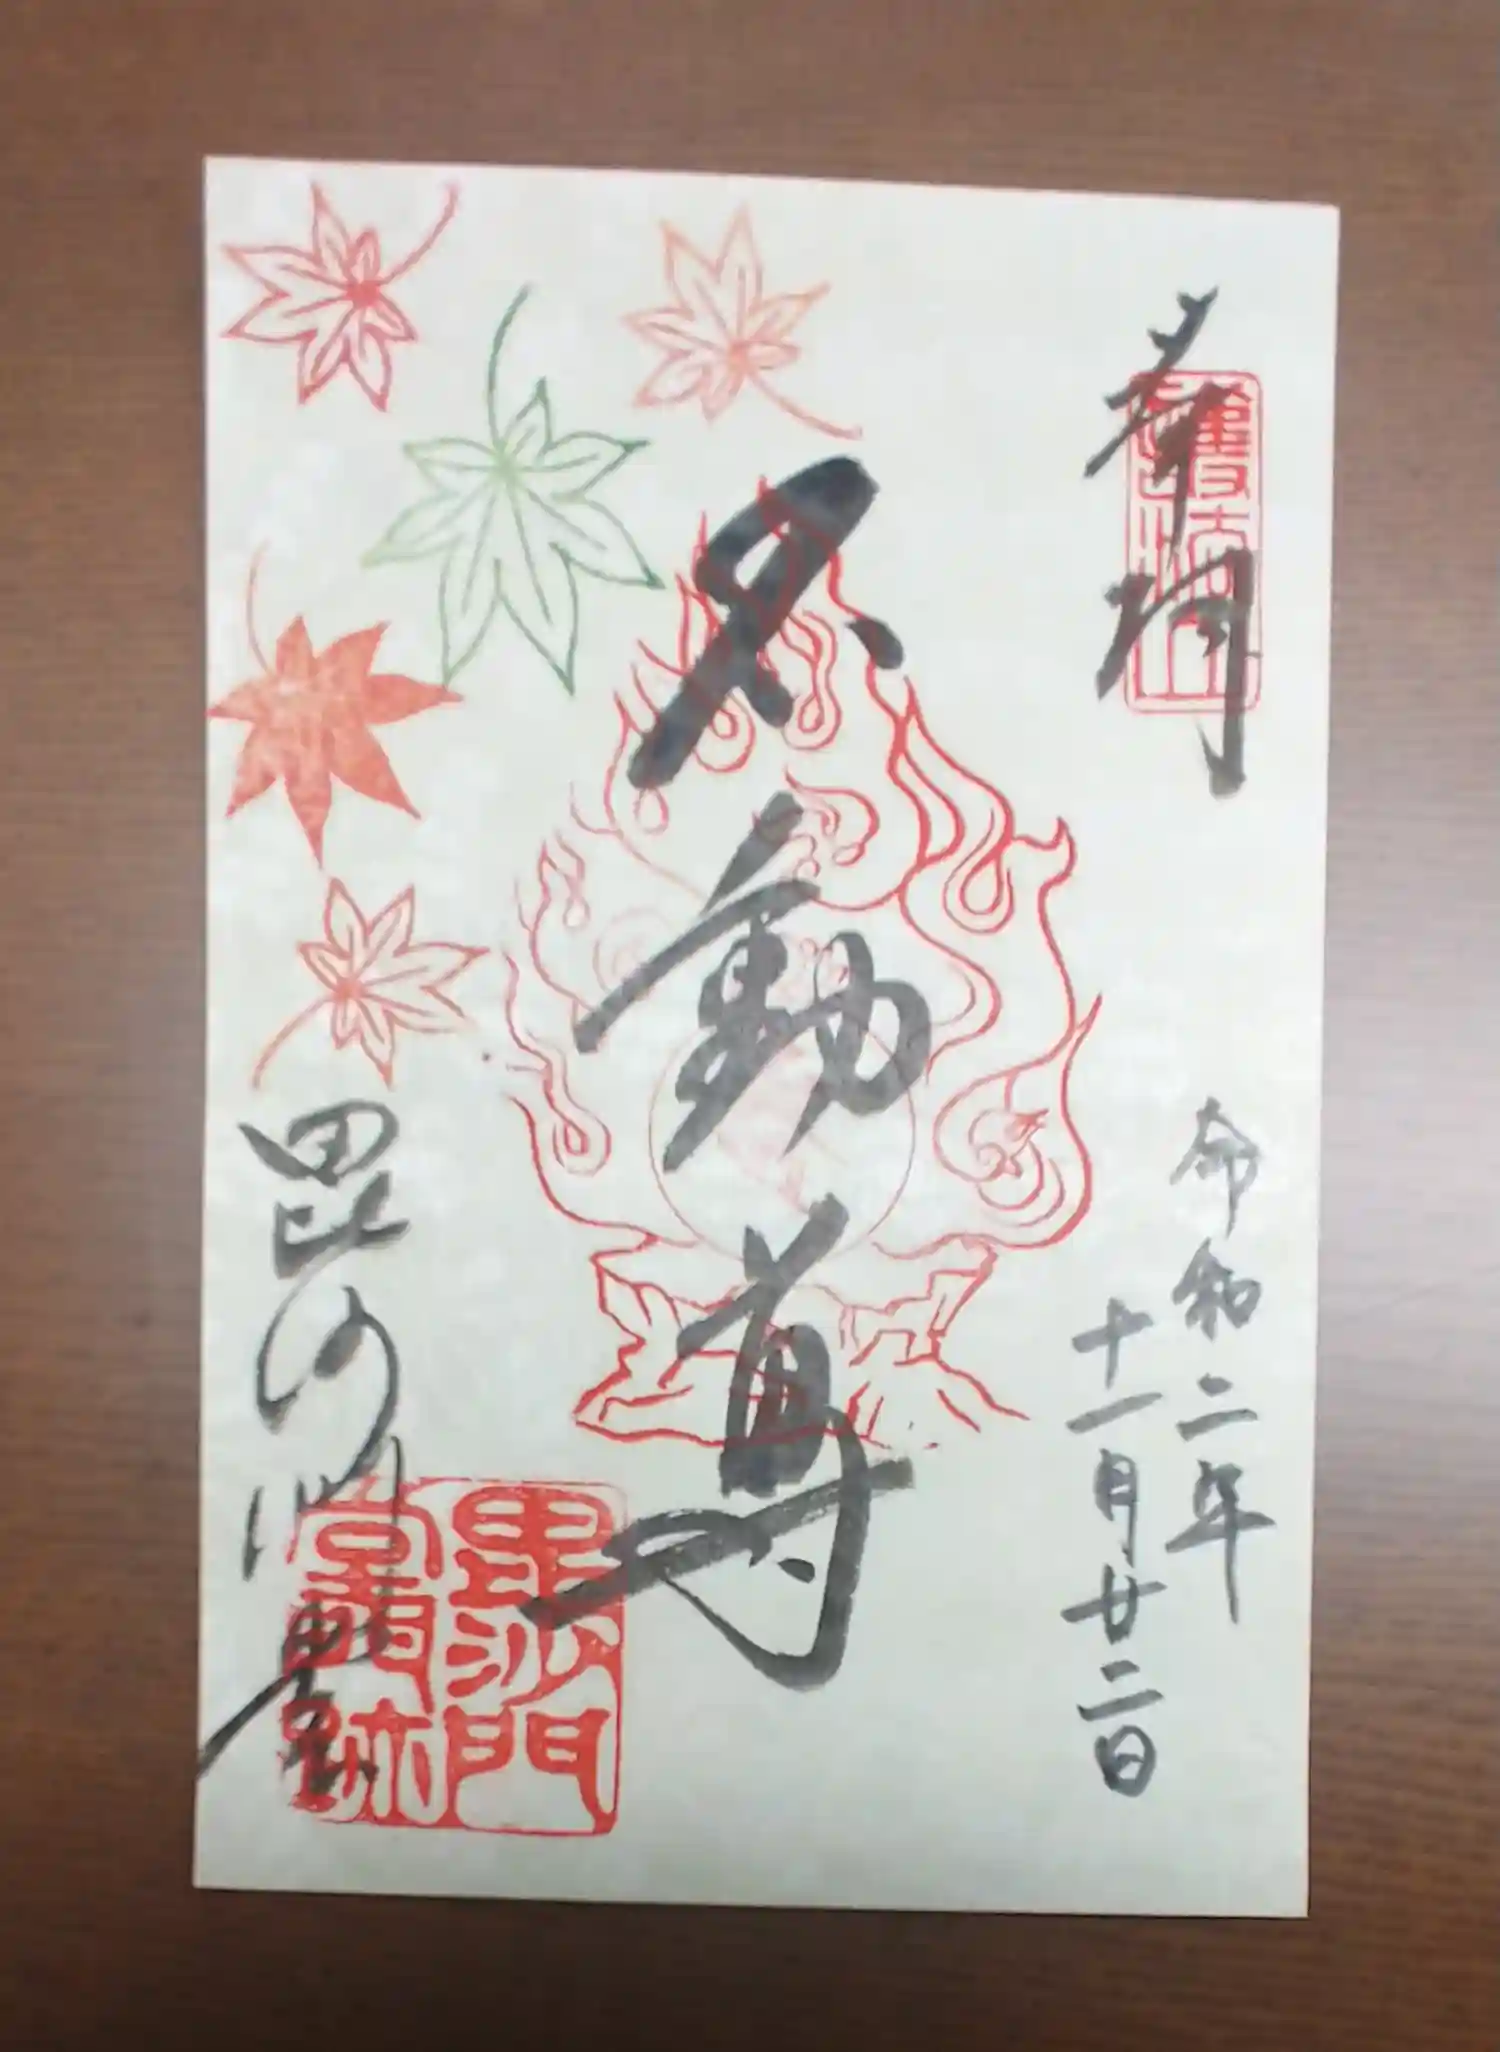 奉拝
護法山
令和二年
十一月廿二日
不動尊
毘沙門堂
毘沙門
堂門跡